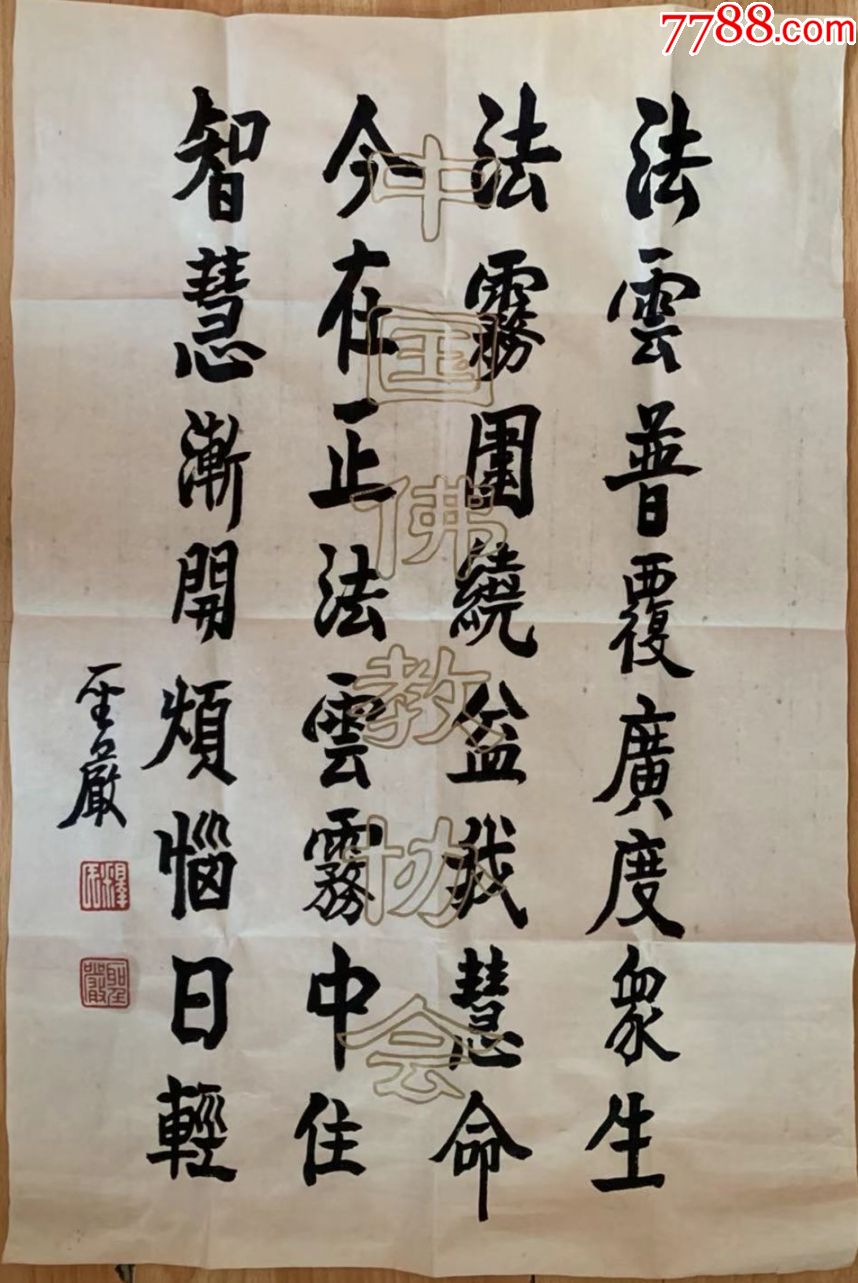 7788.com
法雲普覆廣度眾生
法霧圍繞益我慧命
今在正法雲霧中住
智慧漸開煩惱日輕
聖嚴
釋氏
聖嚴
中国佛教协会